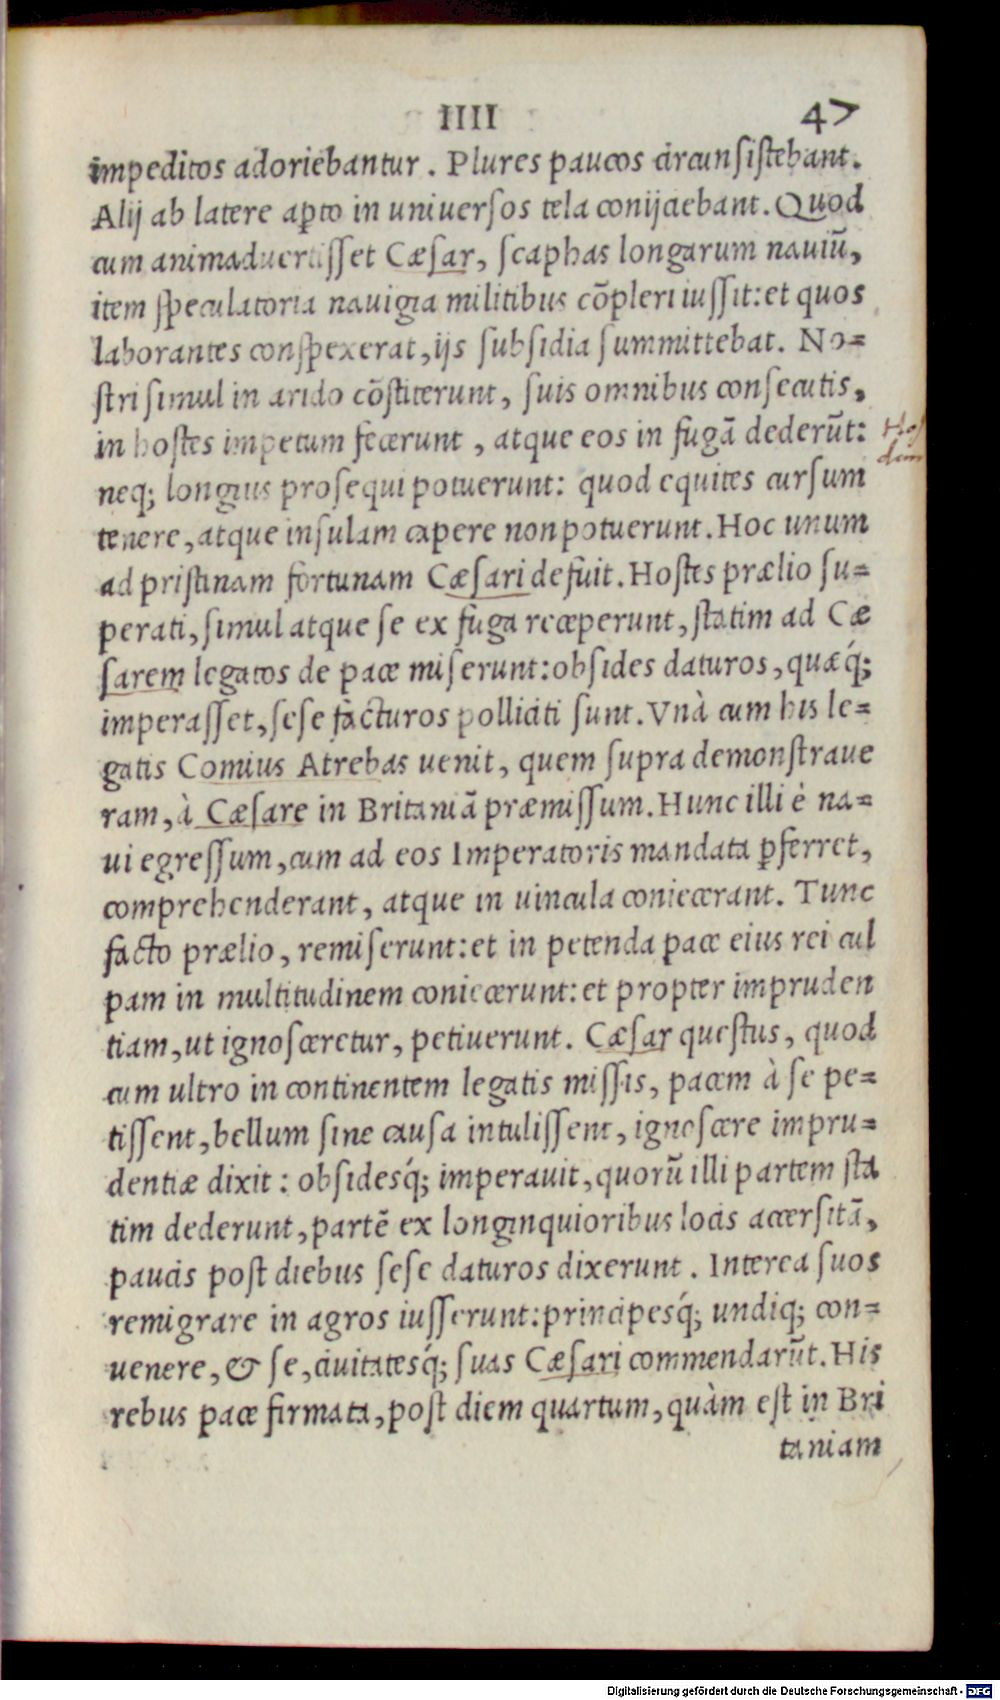 IIII 47
impeditos adoriēbantur. Plures paucos circunsistebant.
Alij ab latere aꝑto in uniuersos tela conijciebant. Quod
cum animaduertisset Cæsar, scaphas longarum nauiū,
item speculatoria nauigia militibus cōpleri iussit: et quos
laborantes conspexerat, ijs subsidia summittebat. No=
stri simul in arido cōstiterunt, suis omnibus consecutis,
in hostes impetum fecerunt, atque eos in fugā dederūt:
neq; longius prosequi potuerunt: quod equites cursum
tenere, atque insulam capere non potuerunt. Hoc unum
ad pristinam fortunam Cæsari defuit. Hostes prælio su=
perati, simul atque se ex fuga receperunt, statim ad Cæ
sarem legatos de pace miserunt: obsides daturos, quæq́;
imperasset, sese facturos polliciti sunt. Vnà cum his le=
gatis Comius Atrebas uenit, quem supra demonstraue
ram, à Cæsare in Britaniā præmissum. Hunc illi è na=
ui egressum, cum ad eos Imperatoris mandata ꝑferret,
comprehenderant, atque in uincula coniecerant. Tunc
facto prælio, remiserunt: et in petenda pace eius rei cul
pam in multitudinem coniecerunt: et propter impruden
tiam, ut ignosceretur, petiuerunt. Cæsar questus, quod
cum ultro in continentem legatis missis, pacem à se pe=
tissent, bellum sine causa intulissent, ignoscere impru=
dentiæ dixit: obsidesq́; imperauit, quorū illi partem sta
tim dederunt, partē ex longinquioribus locis accersitā,
paucis post diebus sese daturos dixerunt. Interea suos
remigrare in agros iusserunt: principesq́; undiq; con=
uenere, & se, ciuitatesq́; suas Cæsari commendarūt. His
rebus pace firmata, post diem quartum, quàm est in Bri
taniam
Digitalisierung gefördert durch die Deutsche Forschungsgemeinschaft - DFG